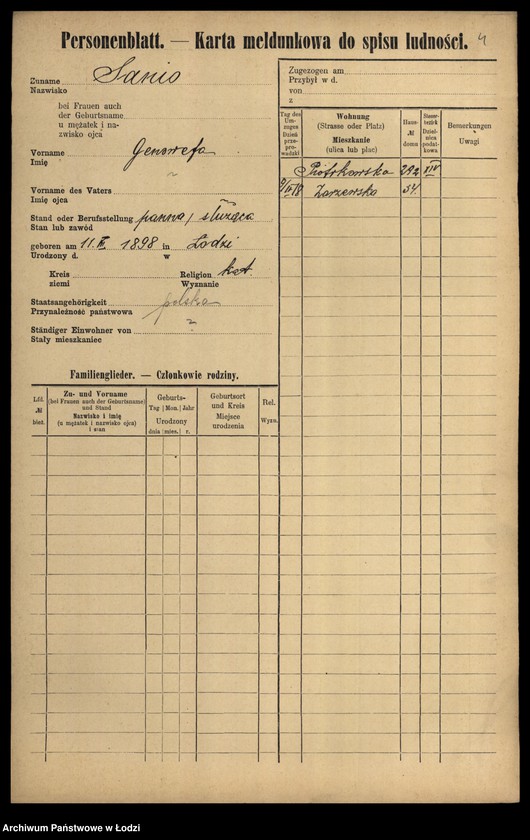 Personenblatt. — Karta meldunkowa do spisu ludności.
4
Zuname Sanio
Nazwisko
bei Frauen auch
der Geburtsname
u mężatek i na-
zwisko ojca
Vorname Genowefa
Imię
Vorname des Vaters
Imię ojca
Stand oder Berufsstellung panna / służąca
Stan lub zawód
geboren am 11. 1898 in Łodzi
Urodzony d. w
Kreis Religion kat.
ziemi Wyznanie
Staatsangehörigkeit polska
Przynależność państwowa
Ständiger Einwohner von ?
Stały mieszkaniec
Familienglieder. — Członkowie rodziny.
Lfd. № bież.
Zu- und Vorname
(bei Frauen auch der Geburtsname)
und Stand
Nazwisko i imię
(u mężatek i nazwisko ojca)
i stan
Geburts-
Tag | Mon. | Jahr
Urodzony
dnia | mies. | r.
Geburtsort
und Kreis
Miejsce
urodzenia
Rel.
Wyzn.
Zugezogen am
Przybył w d.
von
z
Tag des
Um-
zuges
Dzień
prze-
prowadzki
Wohnung
(Strasse oder Platz)
Mieszkanie
(ulica lub plac)
Haus-
№
domu
Steuer-
bezirk
Dziel-
nica
podat-
kowa
Bemerkungen
Uwagi
Piotrkowska 292 XIV
Zarzewska 54.
Archiwum Państwowe w Łodzi